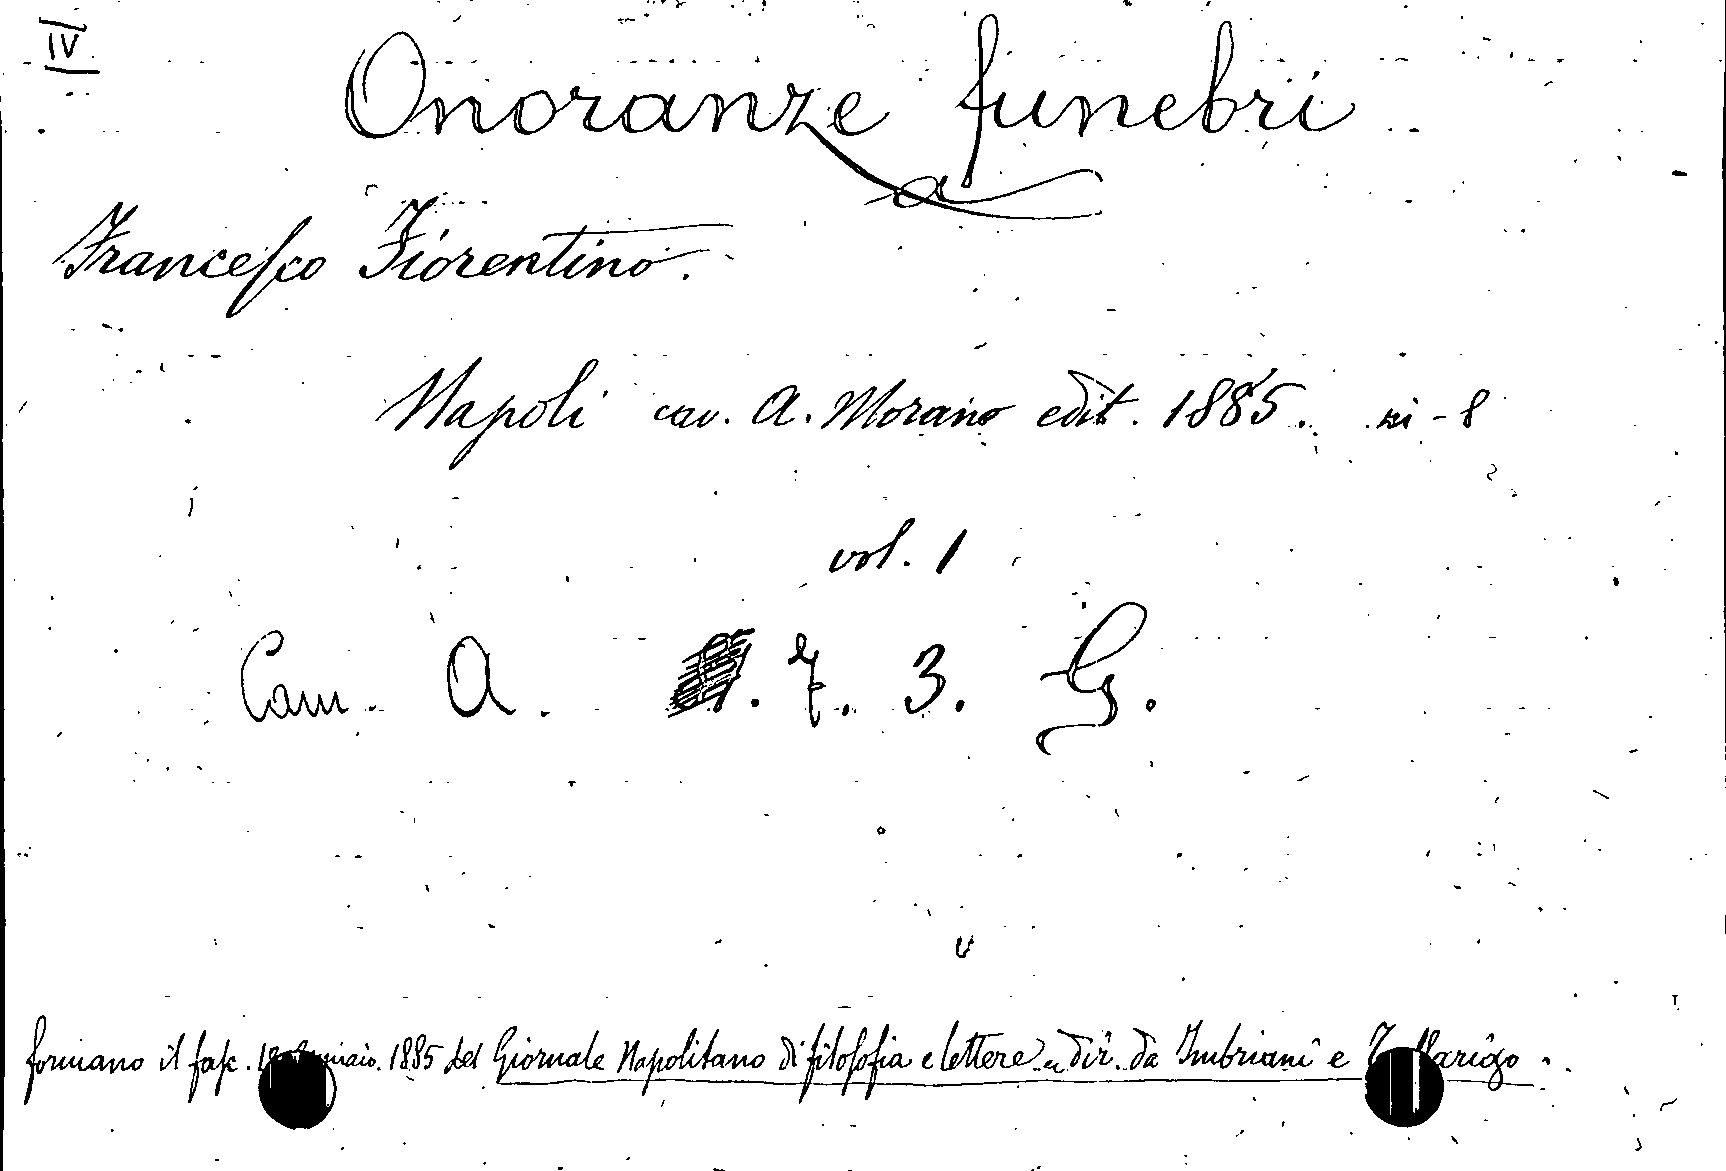 IV
Onoranze funebri
a
Francesco Fiorentino.
Napoli cav. A. Morano edit. 1885. in-8
vol. 1
Cam. A. 7. 3. G.
formano il fasc. 1885 del Giornale Napolitano di filosofia e lettere dir. da Imbriani e